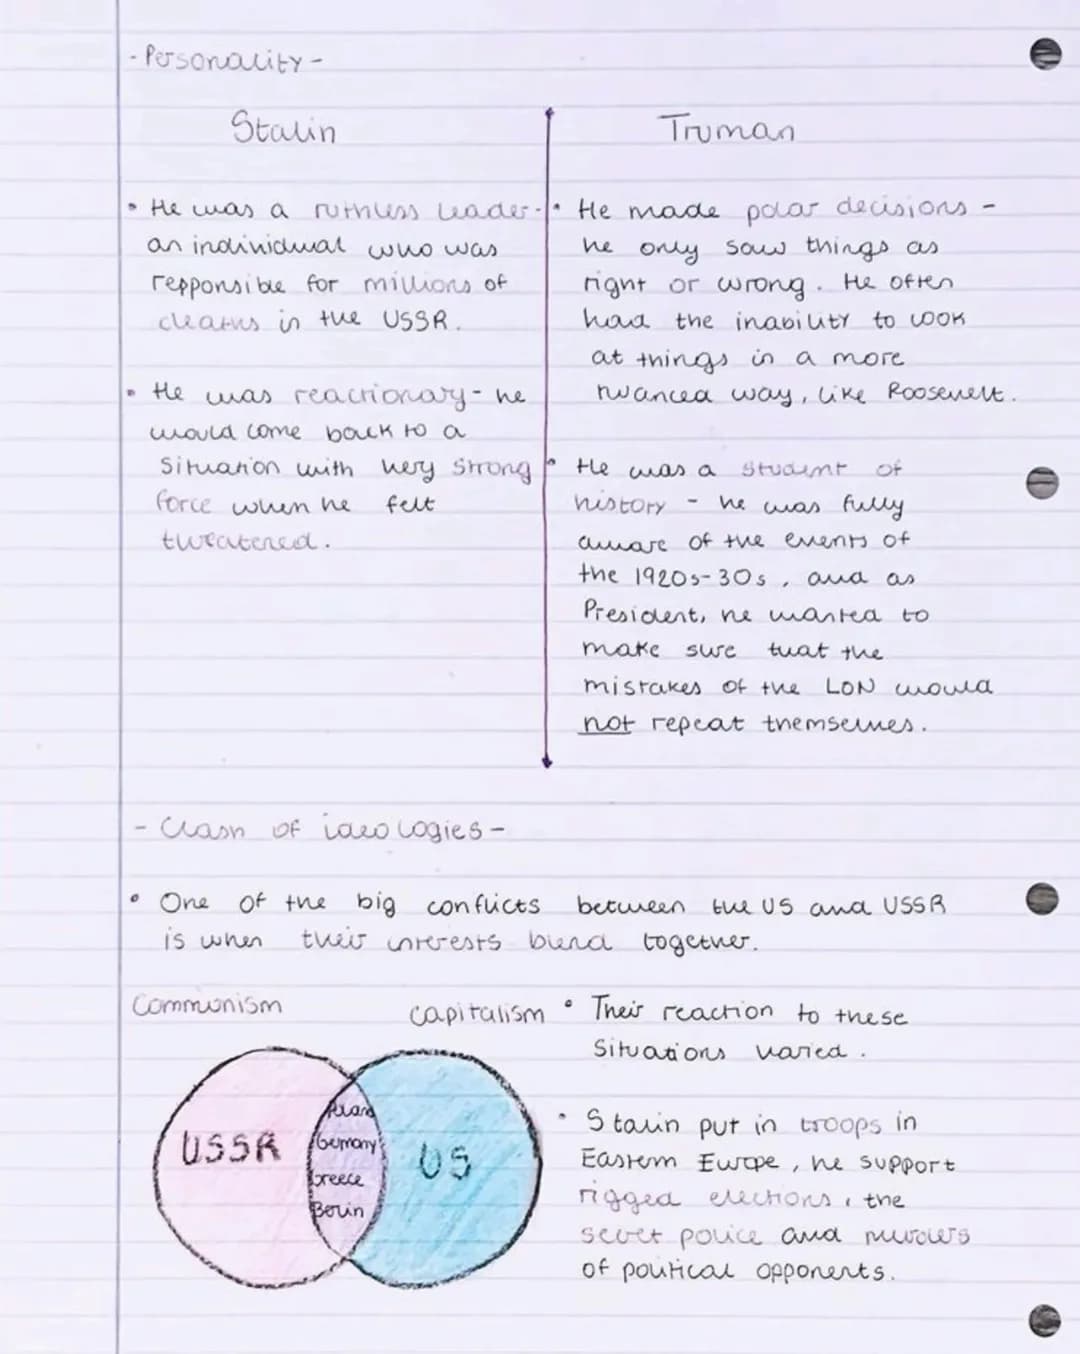 - Personality -
Stalin
• He was a ruthless leader -
an individual who was
responsible for millions of
deaths in the USSR.
• He was reactionary - he
would come back to a
situation with very strong
force when he felt
threatened.
Truman
• He made polar decisions -
he only saw things as
right or wrong. He often
had the inability to look
at things in a more
nuanced way, like Roosevelt.
• He was a student of
history - he was fully
aware of the events of
the 1920s-30s, and as
President, he wanted to
make sure that the
mistakes of the LON would
not repeat themselves.
- Clash of ideologies -
• One of the big conflicts between the US and USSR
is when their interests blend together.
Communism
capitalism
USSR
Poland
Germany
Greece
Berlin
US
• Their reaction to these
situations varied.
• Stalin put in troops in
Eastern Europe, he support
rigged elections, the
secret police and murders
of political opponents.